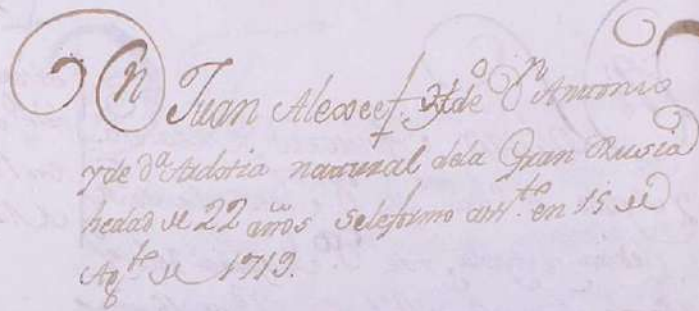 Dn Juan Alexeef. Ht de Dn Antonio
y de Da Audotia natural dela Gran Rusia
hedad de 22 años seleformo assto en 15 de
Agto de 1719.